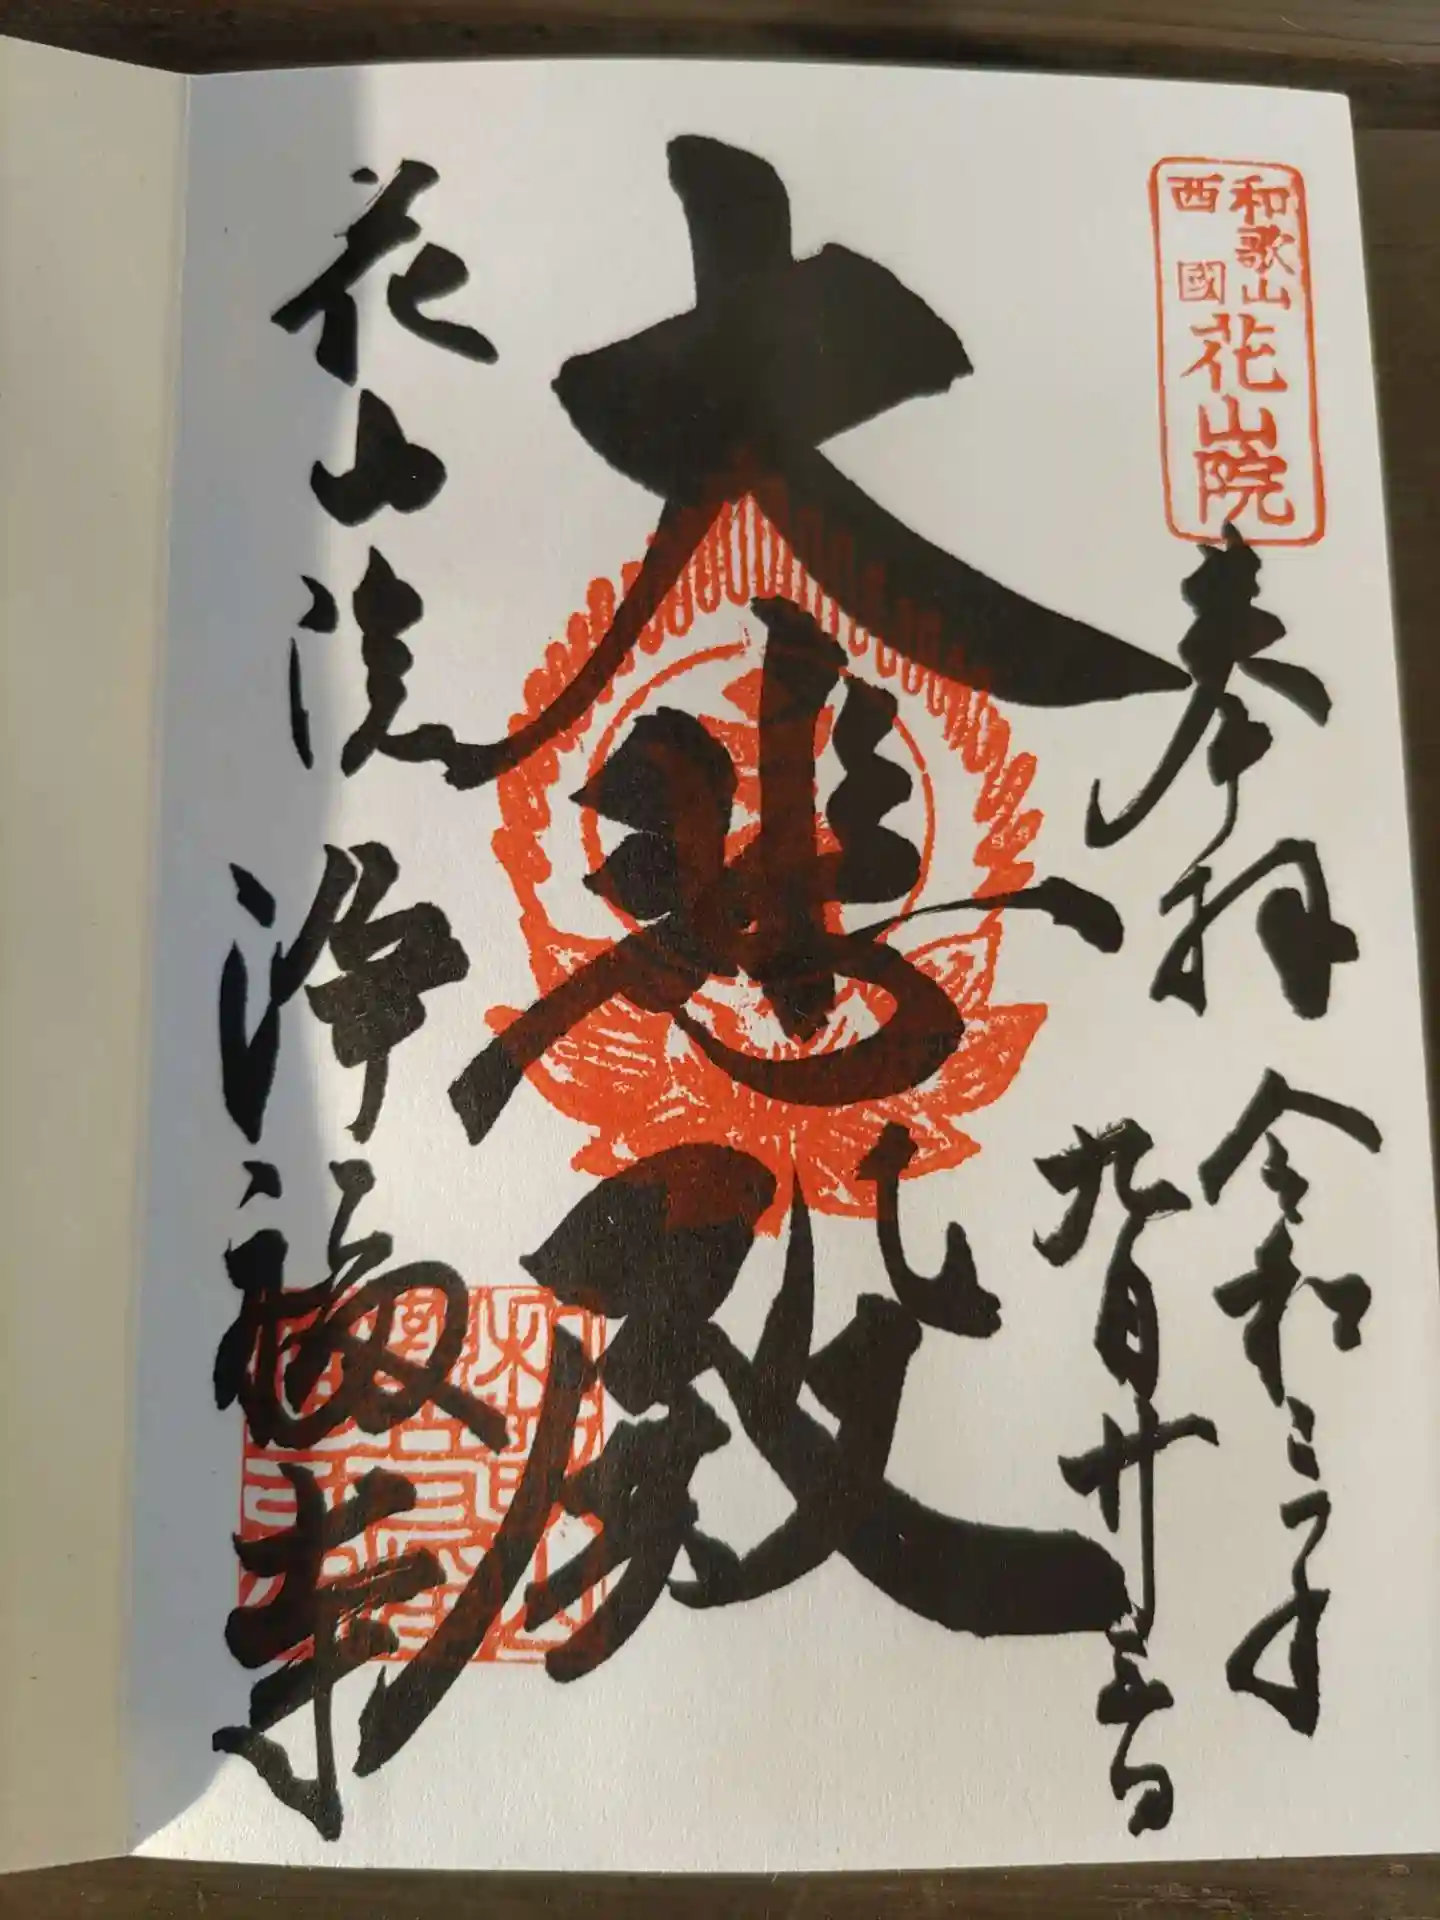 和歌山
西國
花山院
奉拝
令和三年
九月廿五日
大悲殿
花山院
浄福寺